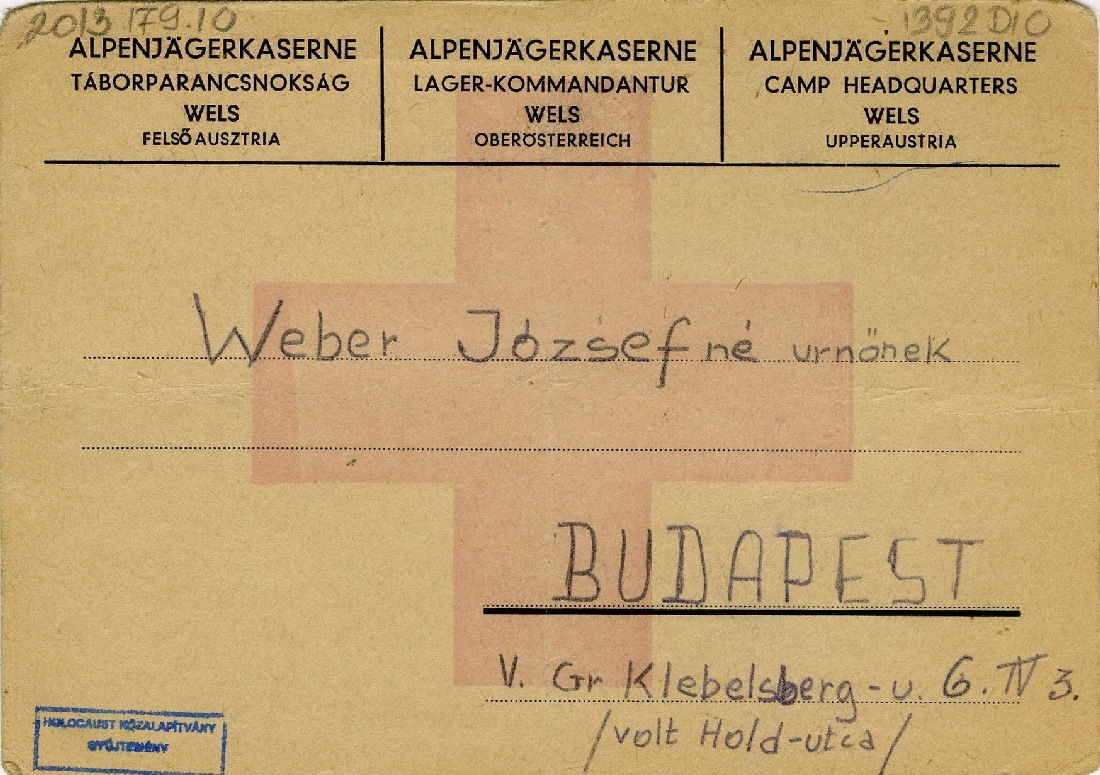 2013.179.10
1392 DIO
ALPENJÄGERKASERNE
TÁBORPARANCSNOKSÁG
WELS
FELSŐAUSZTRIA
ALPENJÄGERKASERNE
LAGER-KOMMANDANTUR
WELS
OBERÖSTERREICH
ALPENJÄGERKASERNE
CAMP HEADQUARTERS
WELS
UPPERAUSTRIA
Weber Józsefné urnőnek
BUDAPEST
V. Gr Klebelsberg-u. 6. IV 3.
/volt Hold-utca/
HOLOCAUST KÖZALAPÍTVÁNY
GYŰJTEMÉNY